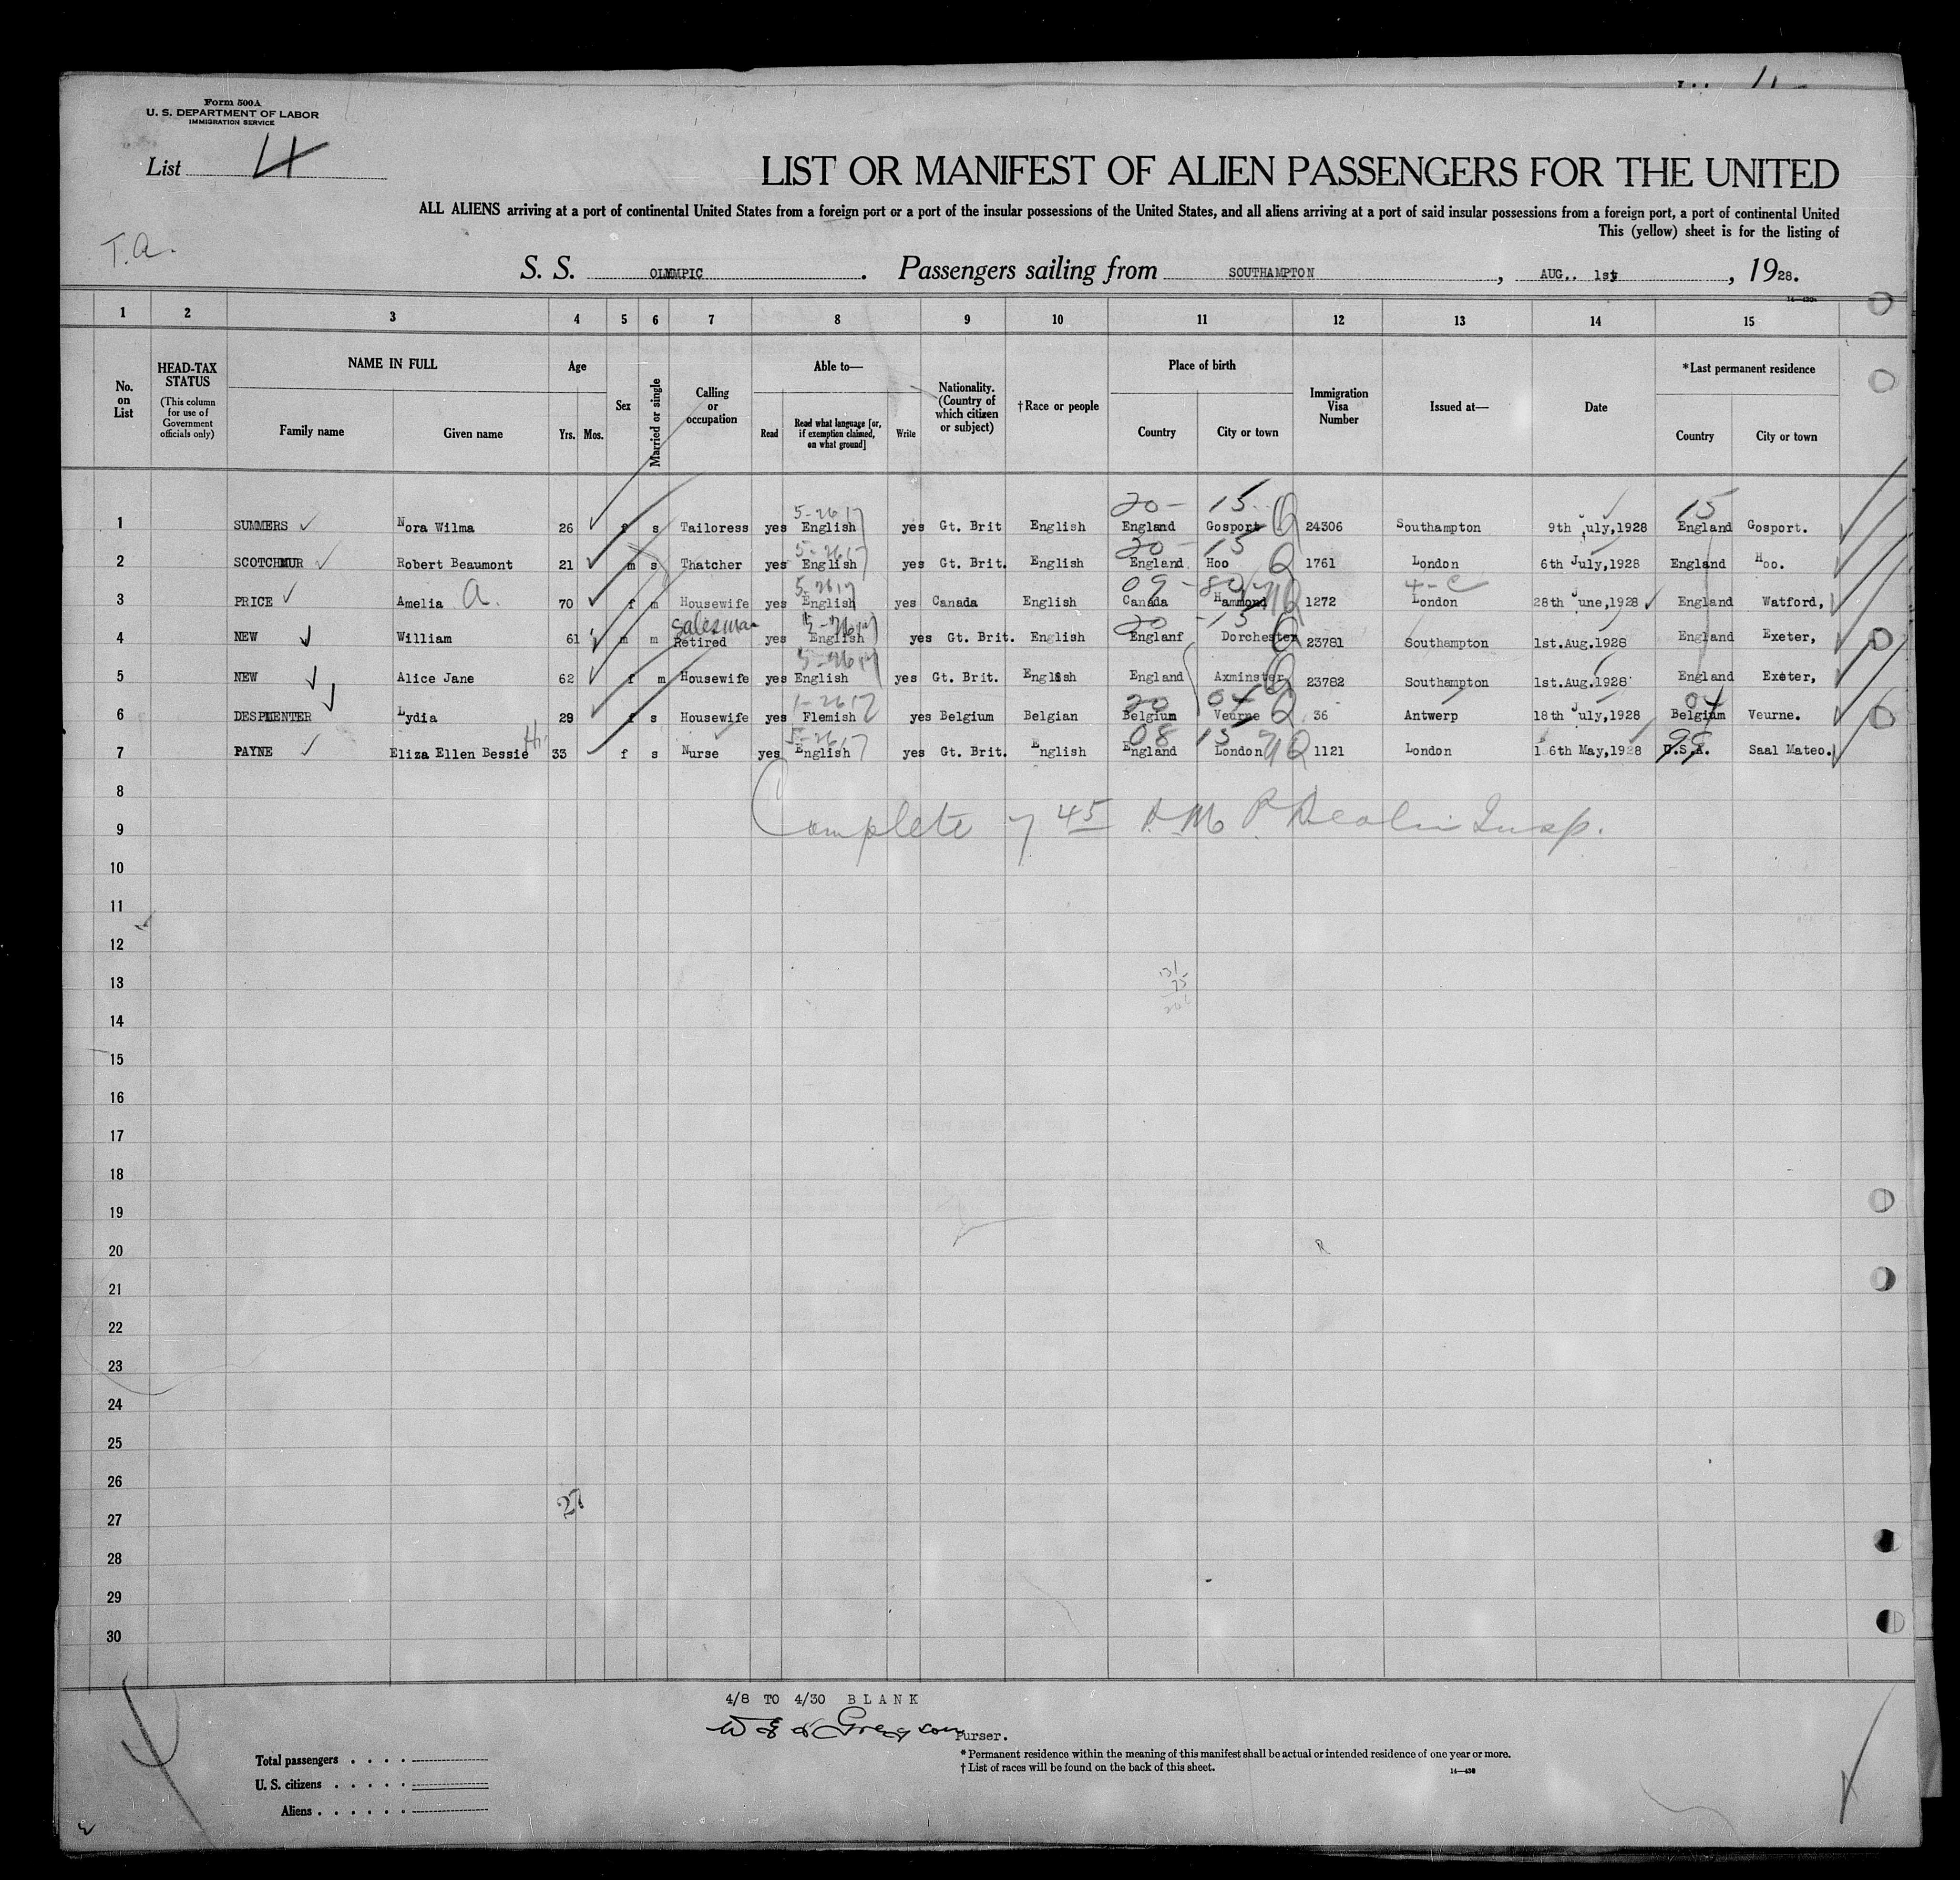 Form 500A
U. S. DEPARTMENT OF LABOR
IMMIGRATION SERVICE
List 4
LIST OR MANIFEST OF ALIEN PASSENGERS FOR THE UNITED
ALL ALIENS arriving at a port of continental United States from a foreign port or a port of the insular possessions of the United States, and all aliens arriving at a port of said insular possessions from a foreign port, a port of continental United
This (yellow) sheet is for the listing of
T.a.
S. S. OLYMPIC. Passengers sailing from SOUTHAMPTON, AUG.. 1st, 1928.
1 2 3 4 5 6 7 8 9 10 11 12 13 14 15
No. on List
HEAD-TAX STATUS (This column for use of Government officials only)
NAME IN FULL
Family name Given name
Age
Yrs. Mos.
Sex
Married or single
Calling or occupation
Able to—
Read Read what language [or, if exemption claimed, on what ground] Write
Nationality. (Country of which citizen or subject)
†Race or people
Place of birth
Country City or town
Immigration Visa Number
Issued at—
Date
*Last permanent residence
Country City or town
20- 15 15
1 SUMMERS Nora Wilma 26 f s Tailoress yes English yes Gt. Brit English England Gosport Q 24306 Southampton 9th July,1928 England Gosport.
20- 15
2 SCOTCHMUR Robert Beaumont 21 m s Thatcher yes English yes Gt. Brit. English England Hoo Q 1761 London 6th July,1928 England Hoo.
09-
3 PRICE Amelia A. 70 f m Housewife yes English yes Canada English Canada Hammond 1272 London 28th June,1928 England Watford,
Salesman 20 -15
4 NEW William 61 m m Retired yes English yes Gt. Brit. English Englanf Dorchester 23781 Southampton 1st.Aug.1928 England Exeter,
5 NEW Alice Jane 62 f m Housewife yes English yes Gt. Brit. English England Axminster Q 23782 Southampton 1st.Aug.1928 England Exeter,
20 04 04
6 DESPLENTER Lydia 28 f s Housewife yes Flemish yes Belgium Belgian Belgium Veurne Q 36 Antwerp 18th July,1928 Belgium Veurne.
08 15 99
7 PAYNE Eliza Ellen Bessie 33 f s Nurse yes English yes Gt. Brit. English England London 1121 London 16th May,1928 U.S.A. Saal Mateo.
8
Complete 7 45 A.M. Insp.
9
10
11
12
13
14
15
16
17
18
19
20
21
22
23
24
25
26
27
27
28
29
30
4/8 TO 4/30 BLANK
Purser.
Total passengers
U. S. citizens
Aliens
* Permanent residence within the meaning of this manifest shall be actual or intended residence of one year or more.
† List of races will be found on the back of this sheet.